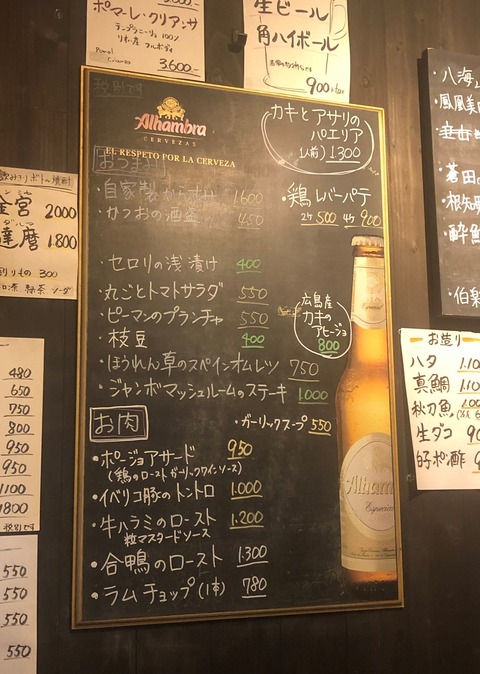 3,000
ポマーレ・クリアンサ
テンプラニーリョ 100%
リオハ産 フルボディ
Pomal
Crianza
3,600-
生ビール
角ハイボール
900+tax
税別です
Alhambra
CERVEZAS
EL RESPETO POR LA CERVEZA
カキとアサリの
パエリア
1人前) 1300
おつまみ
・自家製からすみ 1600
・かつおの酒盗 450
・鶏レバーパテ
2ケ 500 4ケ 900
・セロリの浅漬け 400
・丸ごとトマトサラダ 550
・ピーマンのプランチャ 550
・枝豆 400
・ほうれん草のスペインオムレツ 750
・ジャンボマッシュルームのステーキ 1.000
広島産
カキの
アヒージョ
800
・ガーリックスープ 550
お肉
・ポージョアサード 950
(鶏のロースト ガーリックワインソース)
・イベリコ豚のトントロ 1.000
・牛ハラミのロースト 1.200
粒マスタードソース
・合鴨のロースト 1.300
・ラムチョップ(1本) 780
Alhambra
Especial
飲みきりボトル焼酎
金宮 2000
ダルマ
達磨 1.800
割りもの 300
緑茶 ソーダ
480
650
750
800
950
950
1100
1800
税別です
550
550
550
550
・八海
・鳳凰美田
・蒼田
・根知男
・酔鯨
・伯楽
お造り
ハタ 1.10
真鯛 1.10
秋刀魚 1.00
生ダコ 90
白子ポン酢